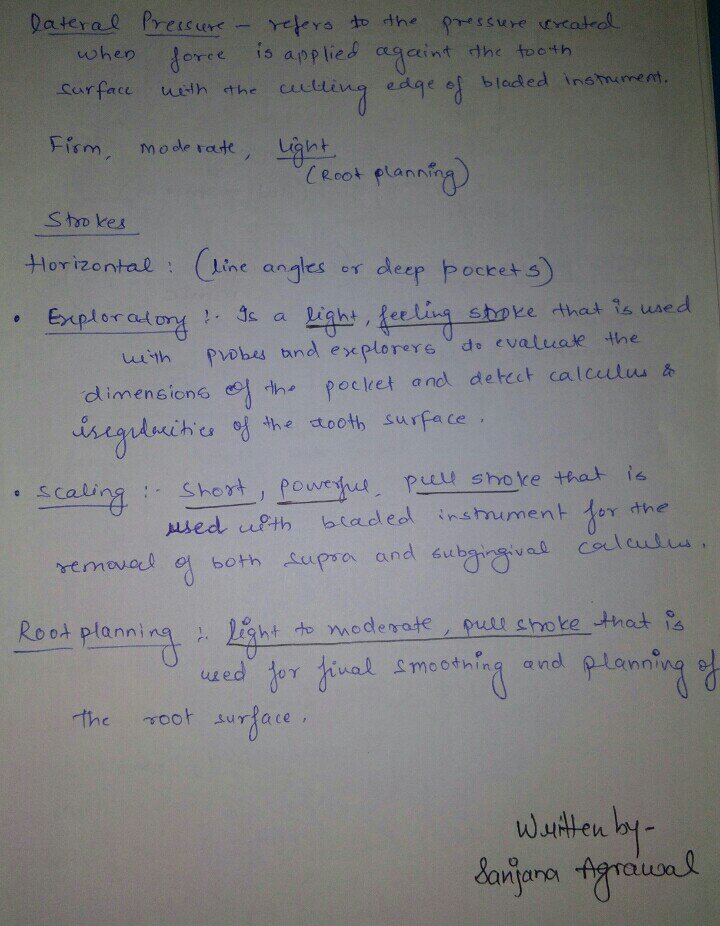 lateral Pressure - refers to the pressure created
when force is applied againt the tooth
surface with the cutting edge of bladed instrument.
Firm, moderate, light
(Root planning)
Strokes
Horizontal : (line angles or deep pockets)
• Exploratory :- Is a light, feeling stroke that is used
with probes and explorers to evaluate the
dimensions of the pocket and detect calculus &
iregularities of the tooth surface.
• scaling :- short, powerful, pull stroke that is
used with bladed instrument for the
removal of both supra and subgingival calculus.
Root planning :- light to moderate, pull stroke that is
used for final smoothing and planning of
the root surface.
Written by-
Sanjana Agrawal